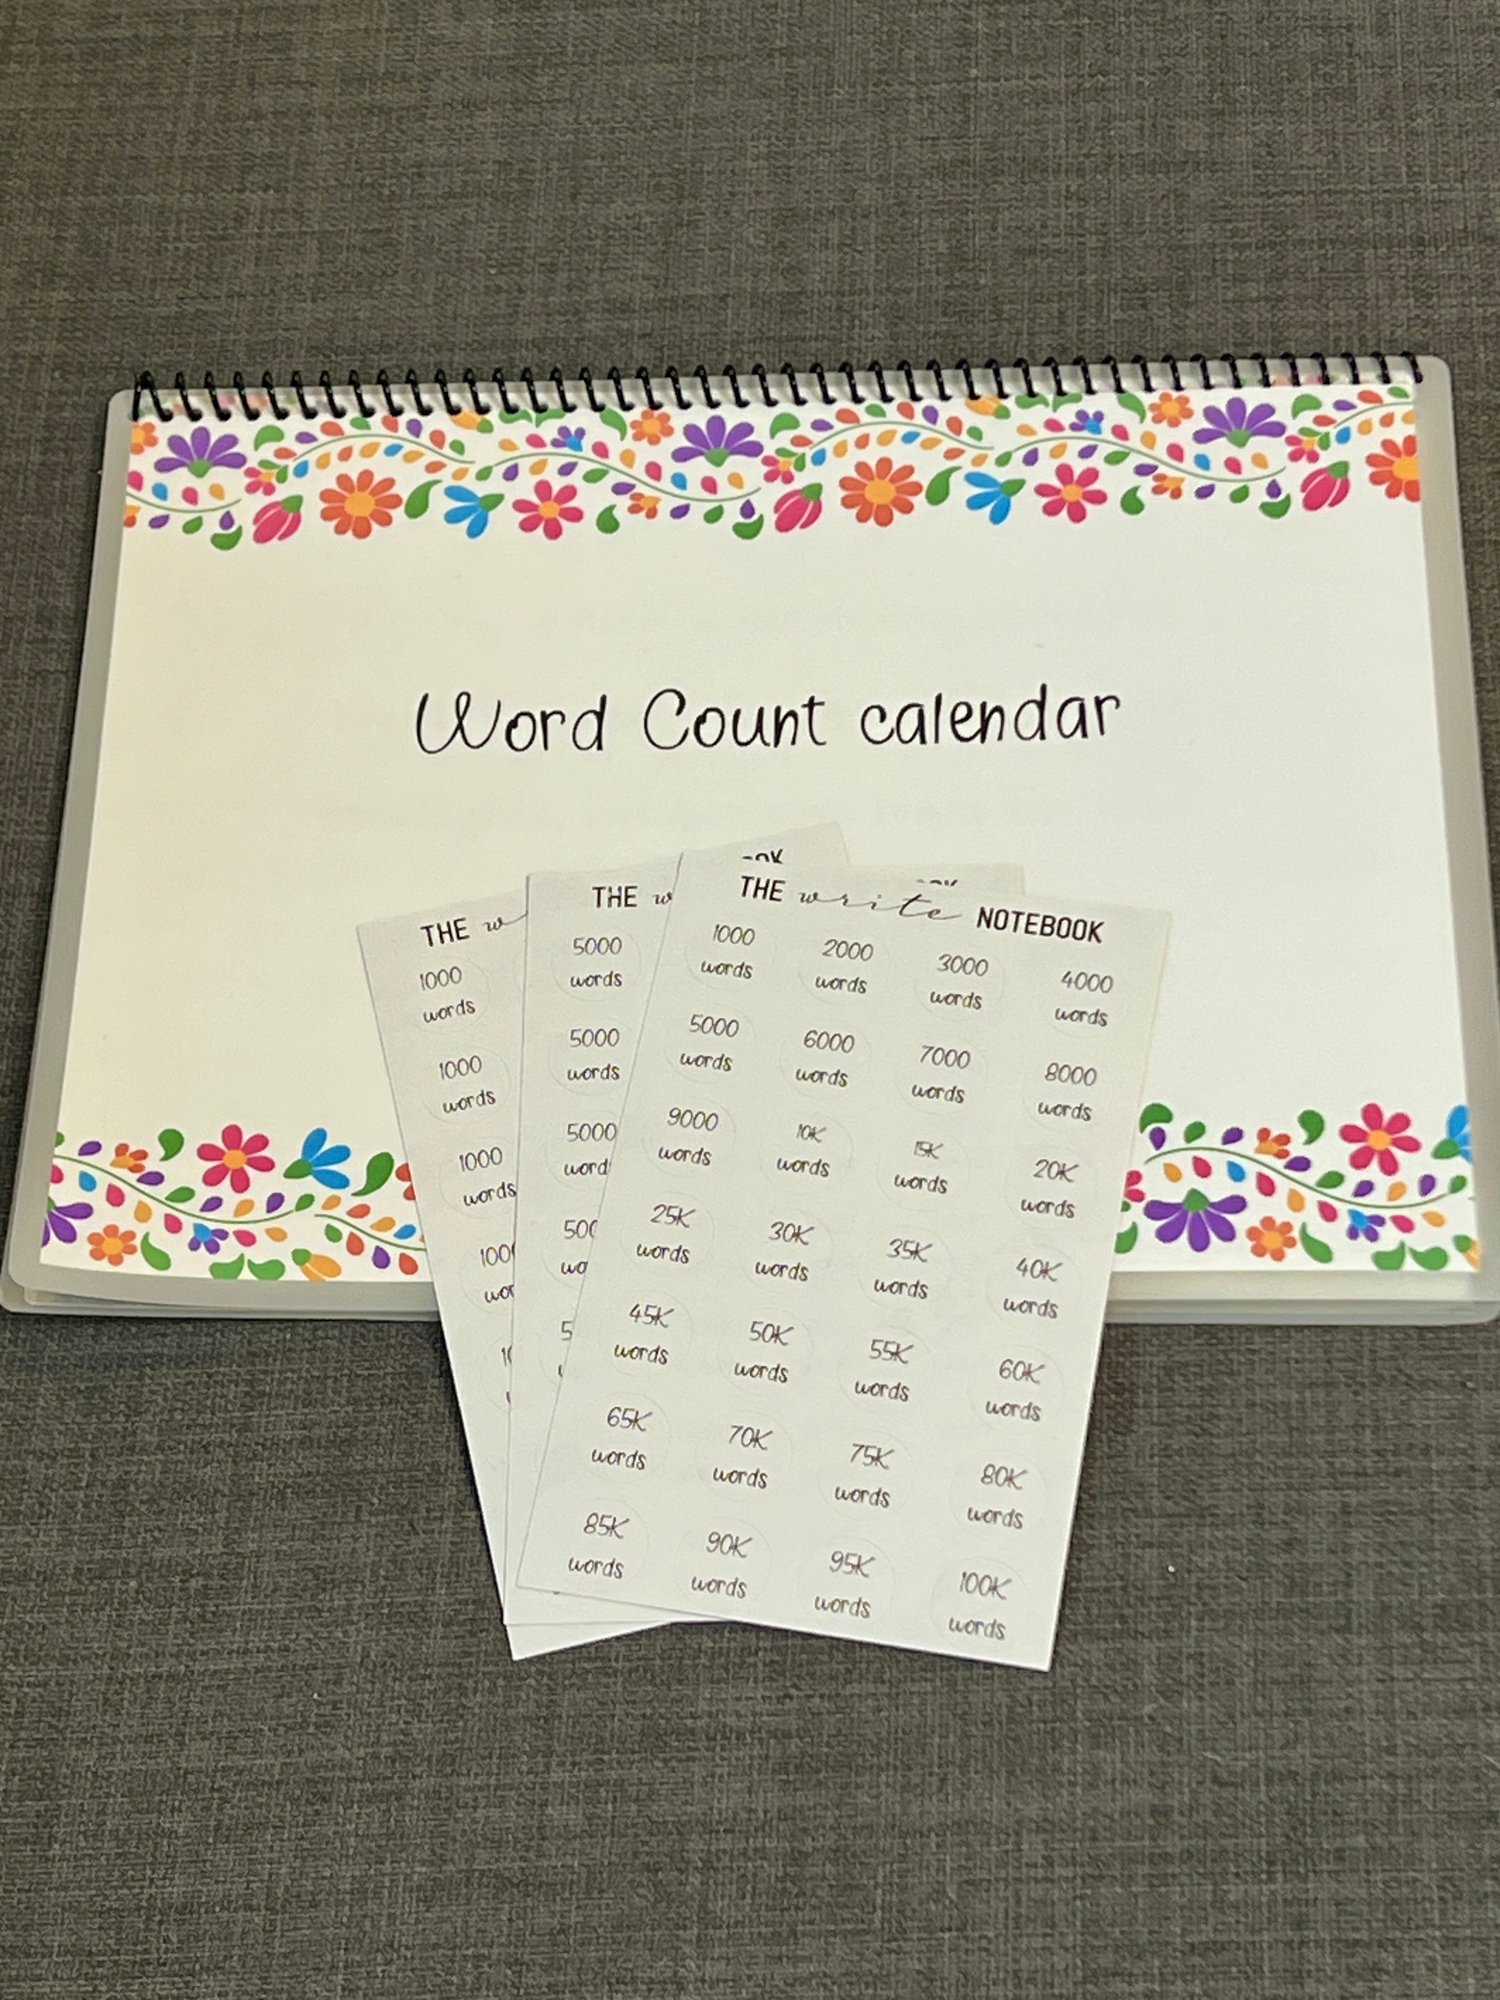 Word Count calendar
THE
1000
words
1000
words
1000
words
THE
5000
words
5000
words
5000
THE write NOTEBOOK
1000 2000 3000 4000
words words words words
5000 6000 7000 8000
words words words words
9000 10K 15K 20K
words words words words
25K 30K 35K 40K
words words words words
45K 50K 55K 60K
words words words words
65K 70K 75K 80K
words words words words
85K 90K 95K 100K
words words words words